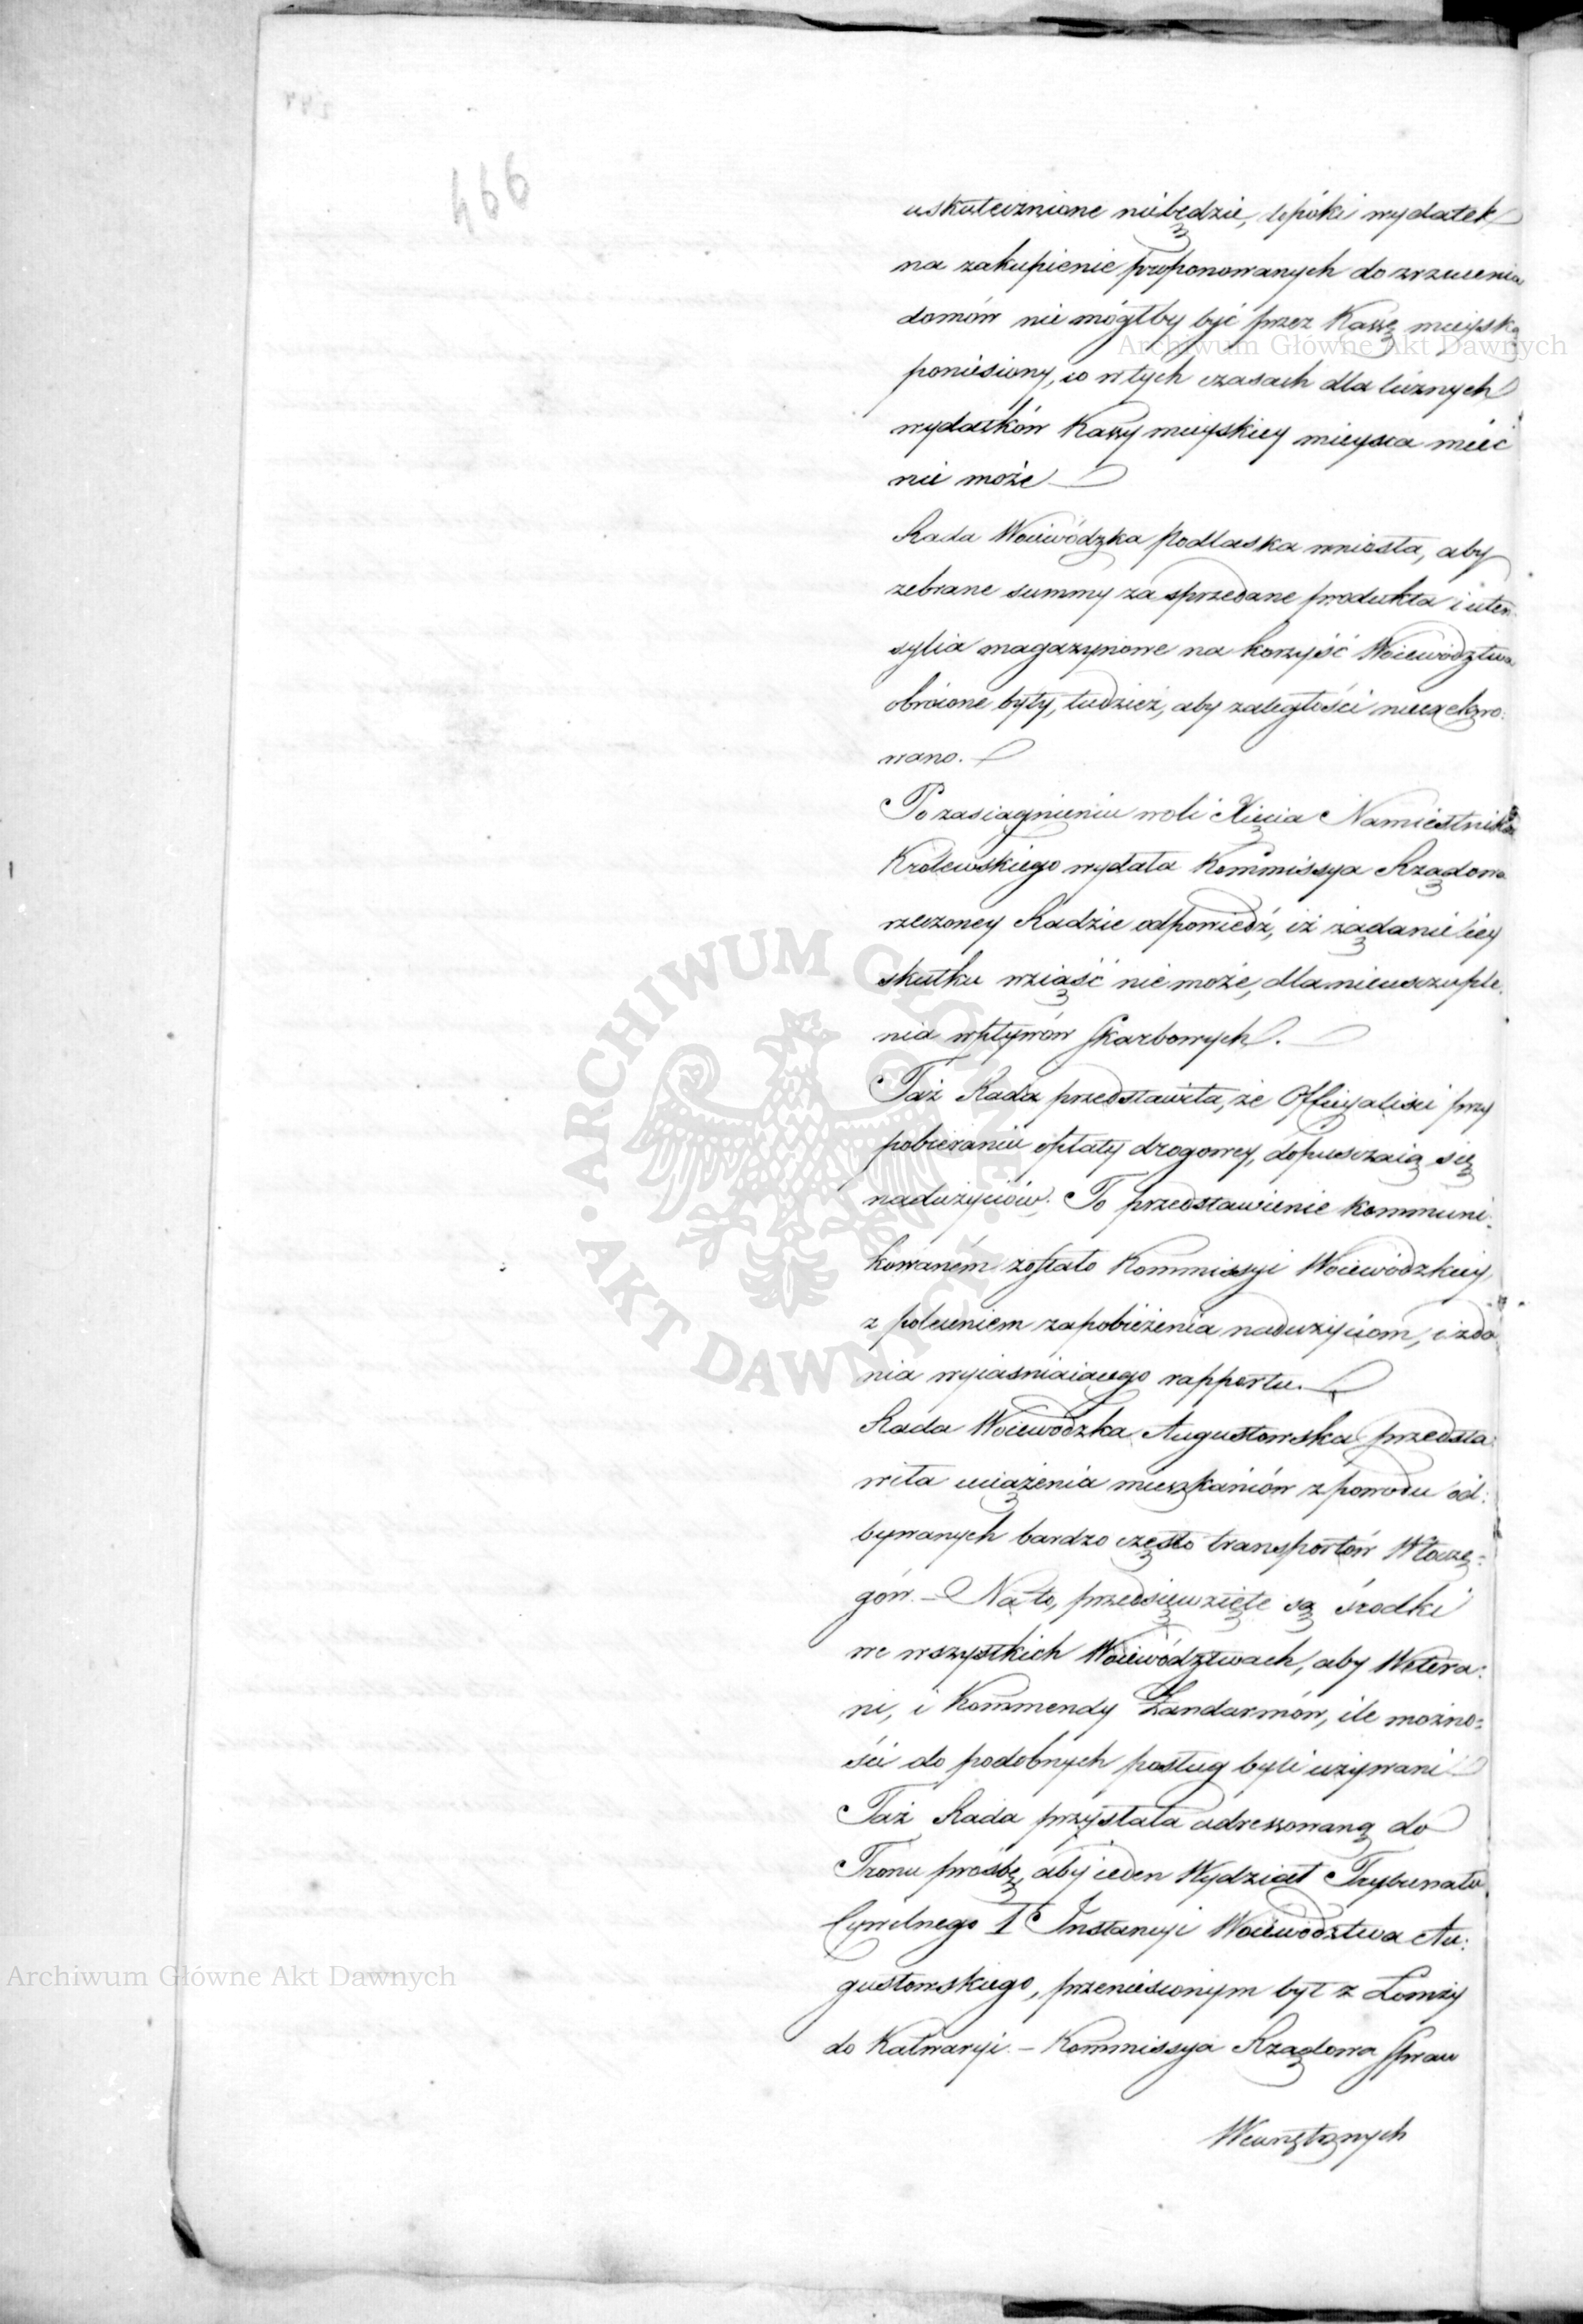 466
uskutecznione niebędzie, dopóki wydatek
na zakupienie proponowanych do zrzucenia
domów nie mógłby być przez Kassę mieyską
poniesiony, co w tych czasach dla licznych
wydatków Kassy mieyskiey mieysca mieć
nie może
Rada Woiewódzka Podlaska wniosła, aby
zebrane summy za sprzedane produkta i uten:
sylia magazynowe na korzyść Woiewództwa
obrócone były, tudzież, aby zaległości nieexekwo:
wano.
Po zasiągnieniu woli Xięcia Namiestnika
Królewskiego wydała Kommissya Rządowa
rzeczoney Radzie odpowiedź, iż żądanie iey
skutku wziąść nie może, dla nieuszczuple:
nia wpływów Skarbowych.
Taż Rada przedstawiła, że Officyaliści przy
pobieraniu opłaty drogowey, dopuszczaią się
nadużyciów. To przedstawienie kommuni:
kowaném zostało Kommissyi Woiewódzkiey,
z poleceniem zapobieżenia nadużyciom, i zda
nia wyiaśniaiącego rapportu.
Rada Woiewódzka Augustowska przedsta:
wiła uciążenia mieszkańców z powodu od:
bywanych bardzo często transportów Włoczę:
gów. – Na to, przedsięwzięte są środki
we wszystkich Woiewództwach, aby Wetera:
ni, i Kommendy Żandarmów, ile możno:
ści do podobnych posług byli używani
Taż Rada przysłała adressowaną do
Tronu prośbę, aby ieden Wydział Trybunału
Cywilnego I Instancyi Woiewództwa Au:
gustowskiego, przeniesionym był z Łomży
do Kalwaryi. – Kommissya Rządowa Spraw
Wewnętrznych
Archiwum Główne Akt Dawnych
ARCHIWUM GŁÓWNE
AKT DAWNYCH
Archiwum Główne Akt Dawnych